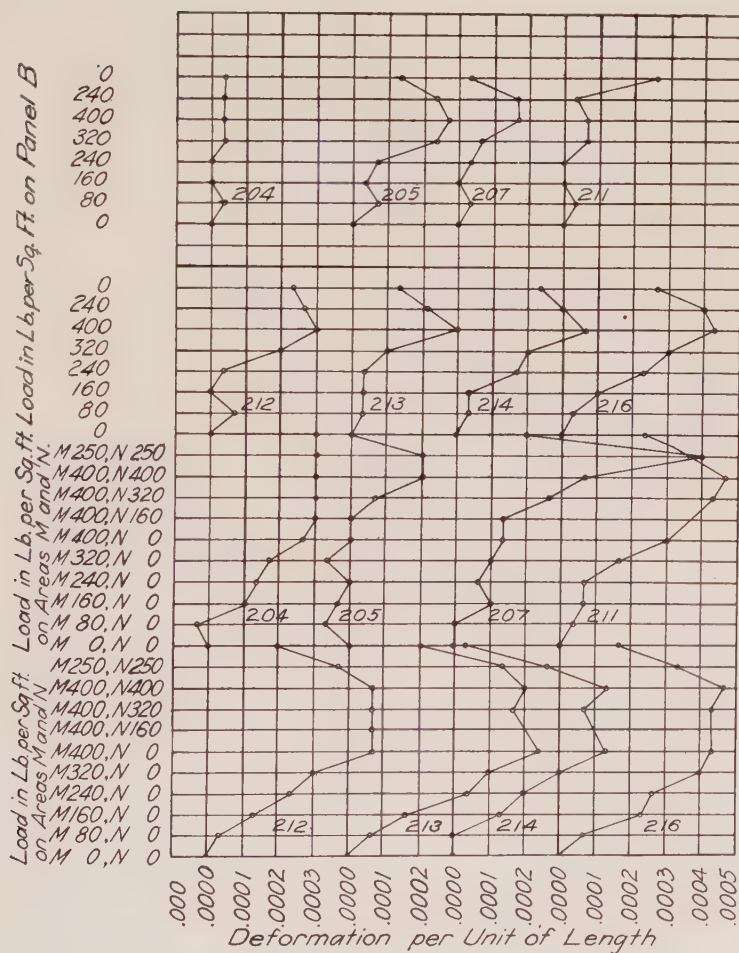 Load in Lb. per Sq. Ft. on Panel B
0
240
400
320
240
160
80
0
204 205 207 211
0
240
400
320
240
160
80
0
212 213 214 216
Load in Lb. per Sq. ft.
on Areas M and N.
M250, N250
M400, N400
M400, N320
M400, N160
M400, N 0
M320, N 0
M240, N 0
M160, N 0
M 80, N 0
M 0, N 0
204 205 207 211
Load in Lb. per Sq. ft.
on Areas M and N
M250, N250
M400, N400
M400, N320
M400, N160
M400, N 0
M320, N 0
M240, N 0
M160, N 0
M 80, N 0
M 0, N 0
212 213 214 216
.000 .0000 .0002 .0003 .0000 .0001 .0002 .0000 .0001 .0002 .0000 .0001 .0002 .0003 .0004 .0005
Deformation per Unit of Length